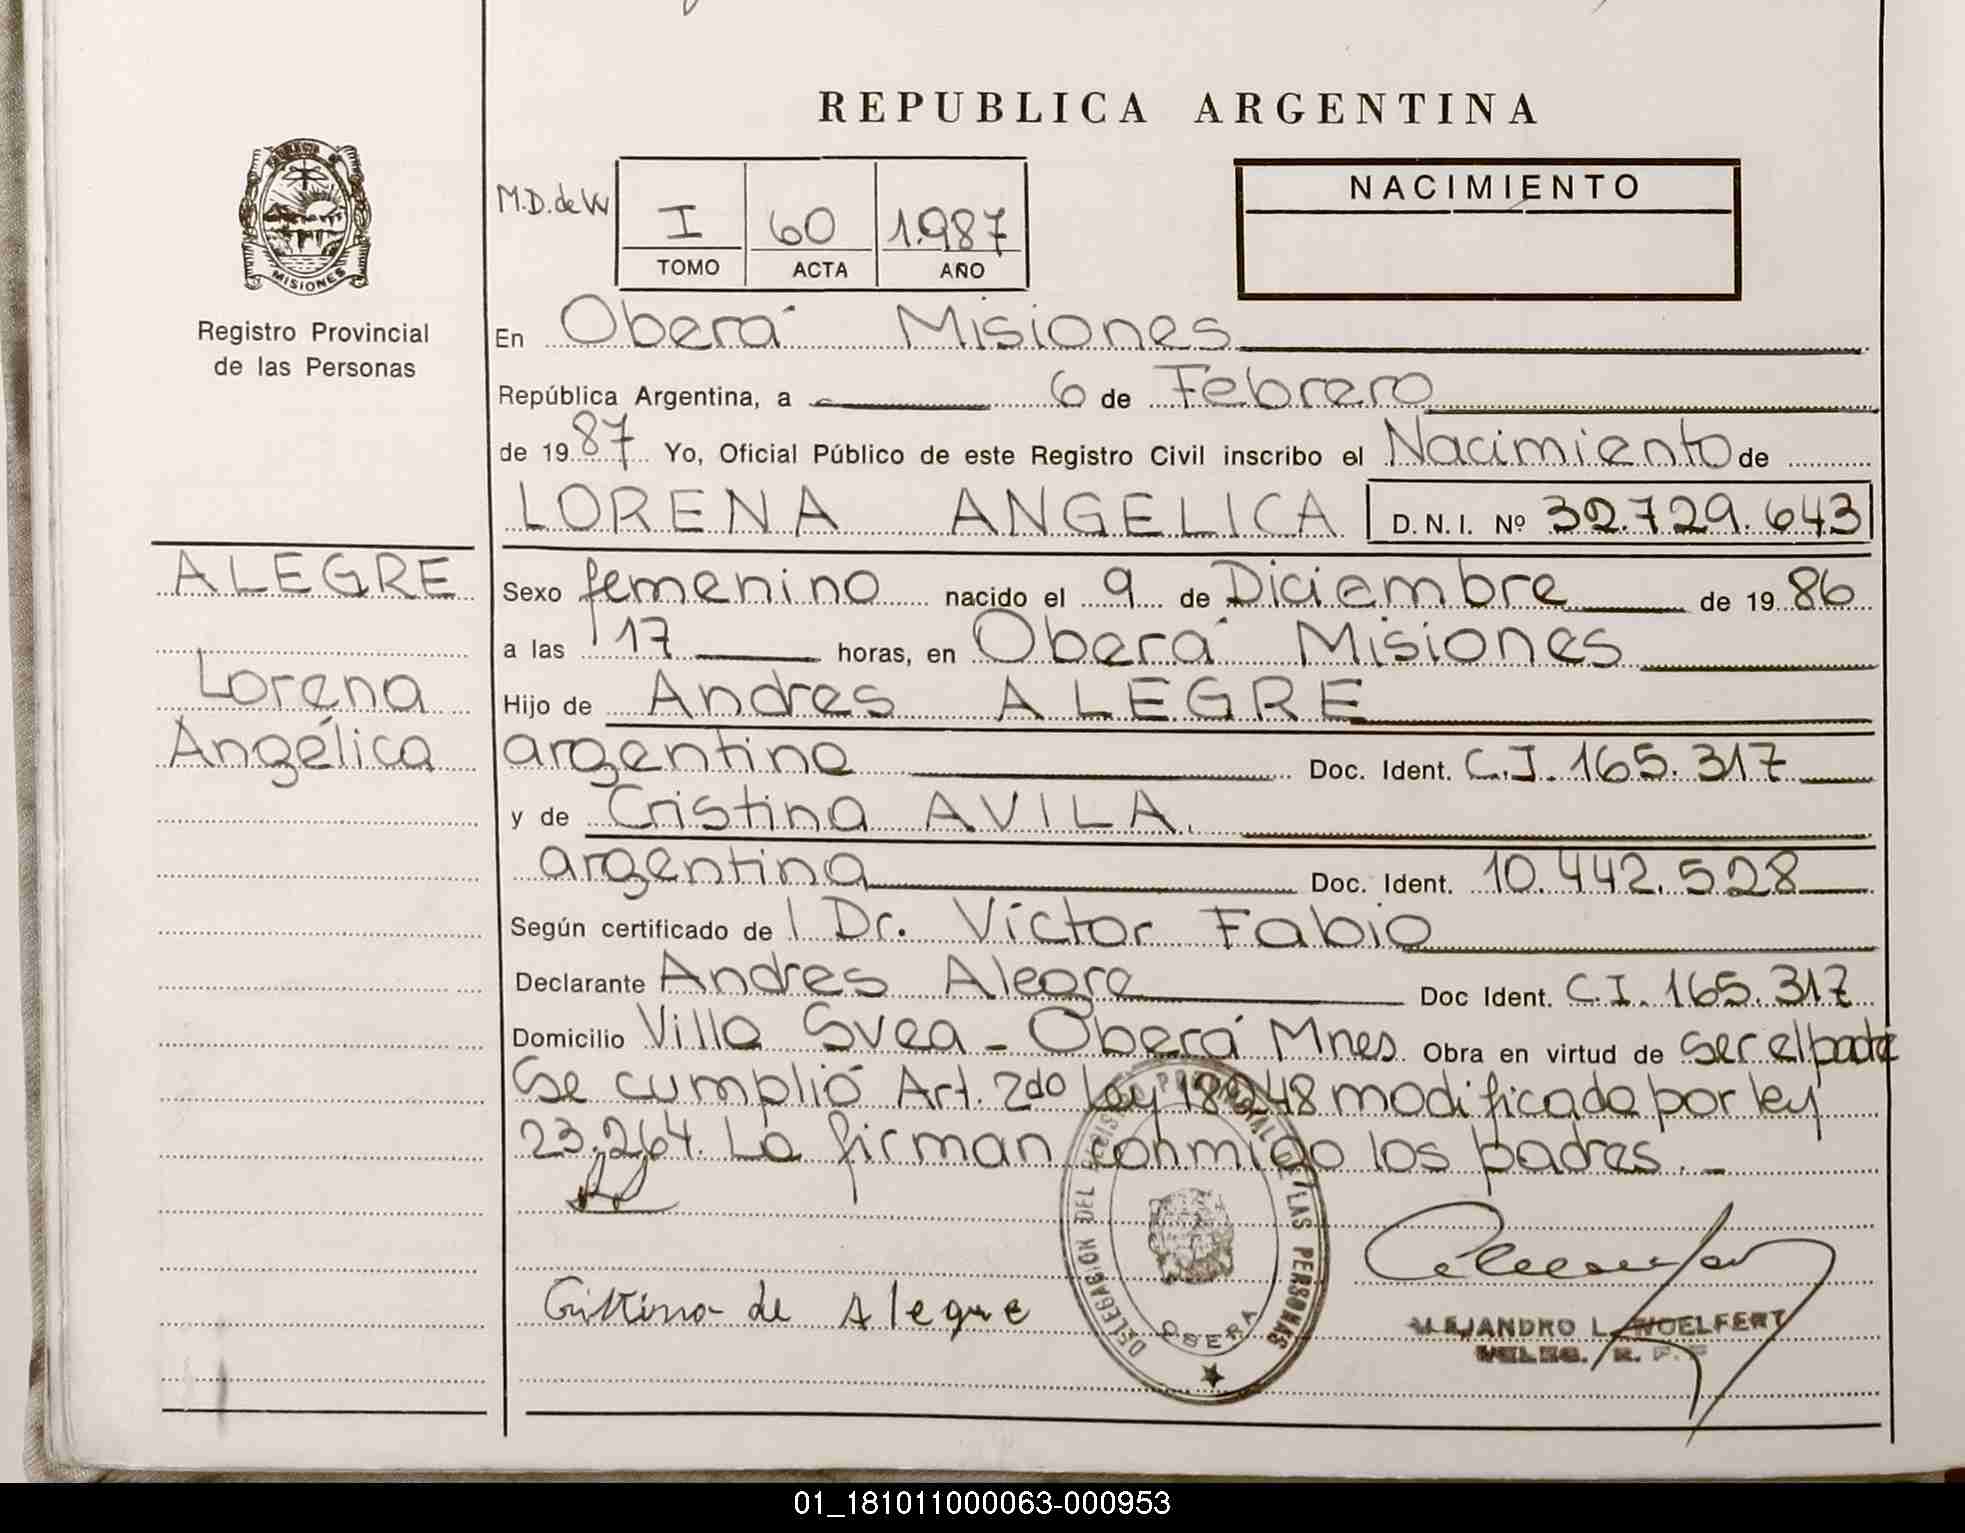 REPUBLICA ARGENTINA
MISIONES
Registro Provincial
de las Personas
M.D.de W
I 60 1.987
TOMO ACTA AÑO
NACIMIENTO
En Oberá Misiones
República Argentina, a 6 de Febrero
de 1987 Yo, Oficial Público de este Registro Civil inscribo el Nacimiento de
LORENA ANGELICA D.N.I. Nº 32.729.643
ALEGRE
Lorena
Angélica
Sexo femenino nacido el 9 de Diciembre de 1986
a las 17 horas, en Oberá Misiones
Hijo de Andres ALEGRE
argentino Doc. Ident. C.I. 165.317
y de Cristina AVILA.
argentina Doc. Ident. 10.442.528
Según certificado de l Dr. Víctor Fabio
Declarante Andres Alegre Doc Ident. C.I. 165.317
Domicilio Villa Svea - Oberá Mnes. Obra en virtud de ser el padre
Se cumplió Art. 2do Ley 18248 modificada por ley
23.264. La firman conmigo los padres. -
Cristina de Alegre
DELEGACION DEL REGISTRO PROVINCIAL DE LAS PERSONAS
OBERA
ALEJANDRO L. WOELFERT
DELEG. R. P. P
01_181011000063-000953